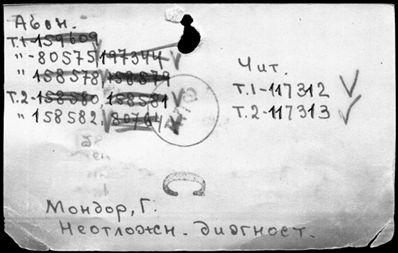 Абон.
т.1-159609
"-80575 197344
" 158578 158879
т.2-158580, 158581
" 158582, 80764
Чит.
т.1-117312
т.2-117313
С
Мондор, Г.
Неотложн. диагност.